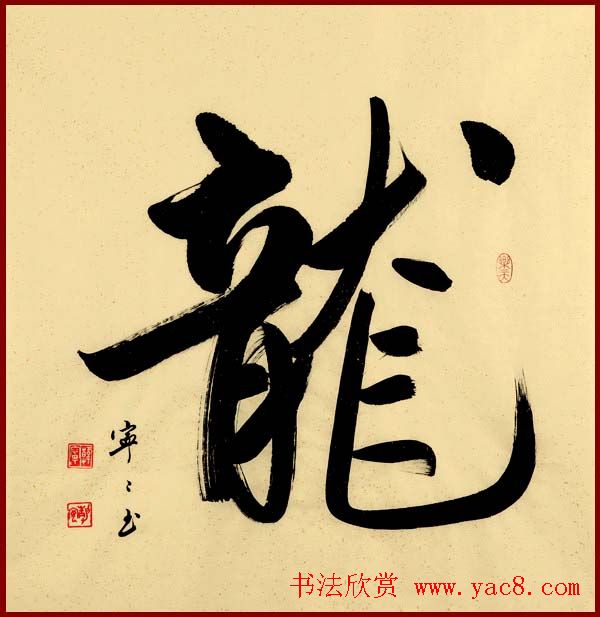 龍
寧
书法欣赏 www.yac8.com